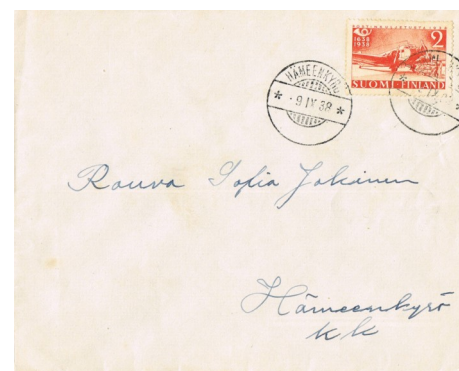 1638
1938
2
SUOMI FINLAND
HÄMEENKYRÖ
* -9.IX.38 *
Rouva Sofia Jokinen
Hämeenkyrö
KK